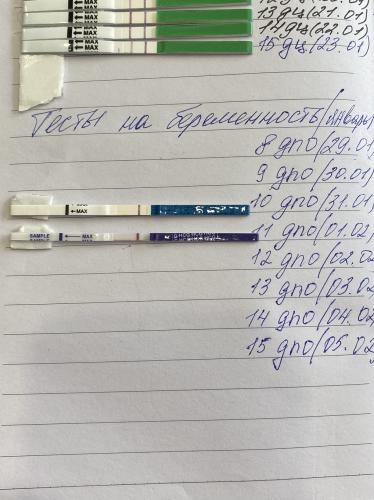 MAX
13 дц(21.01)
MAX
14 дц(22.01)
MAX
15 дц(23.01)
Тесты на беременность/январь
8 дпо(29.01
9 дпо(30.01)
10 дпо(31.01)
MAX
11 дпо(01.02)
SAMPLE MAX
12 дпо(02.02
13 дпо(03.02
14 дпо(04.02
15 дпо(05.02